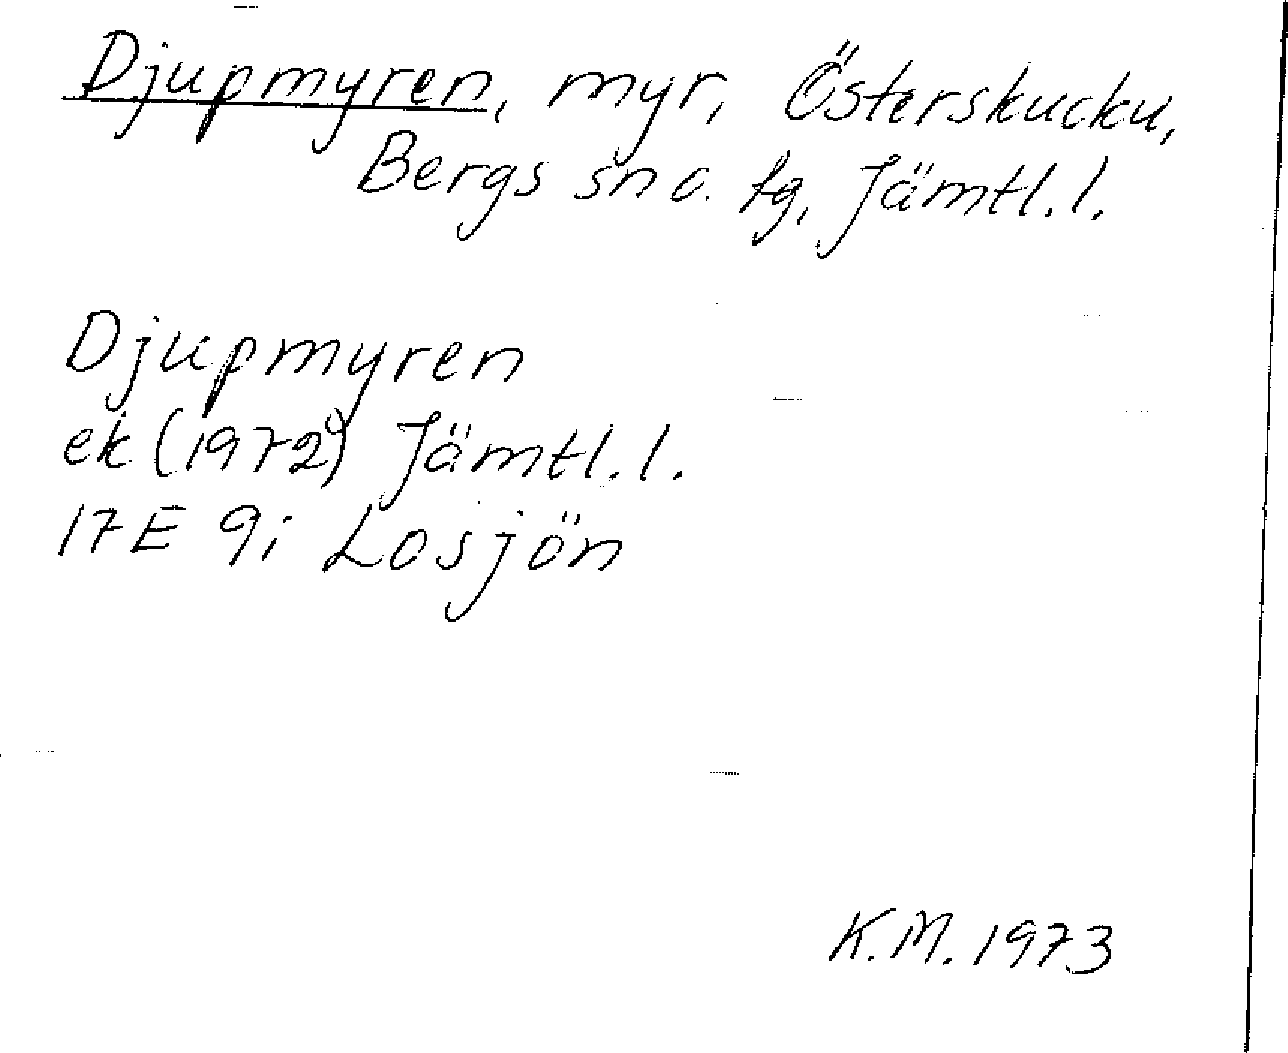 Djupmyren, myr, Österskucku,
Bergs sn o. tg, Jämtl. l.
Djupmyren
ek (1972) Jämtl. l.
17E 9i Losjön
K.M. 1973